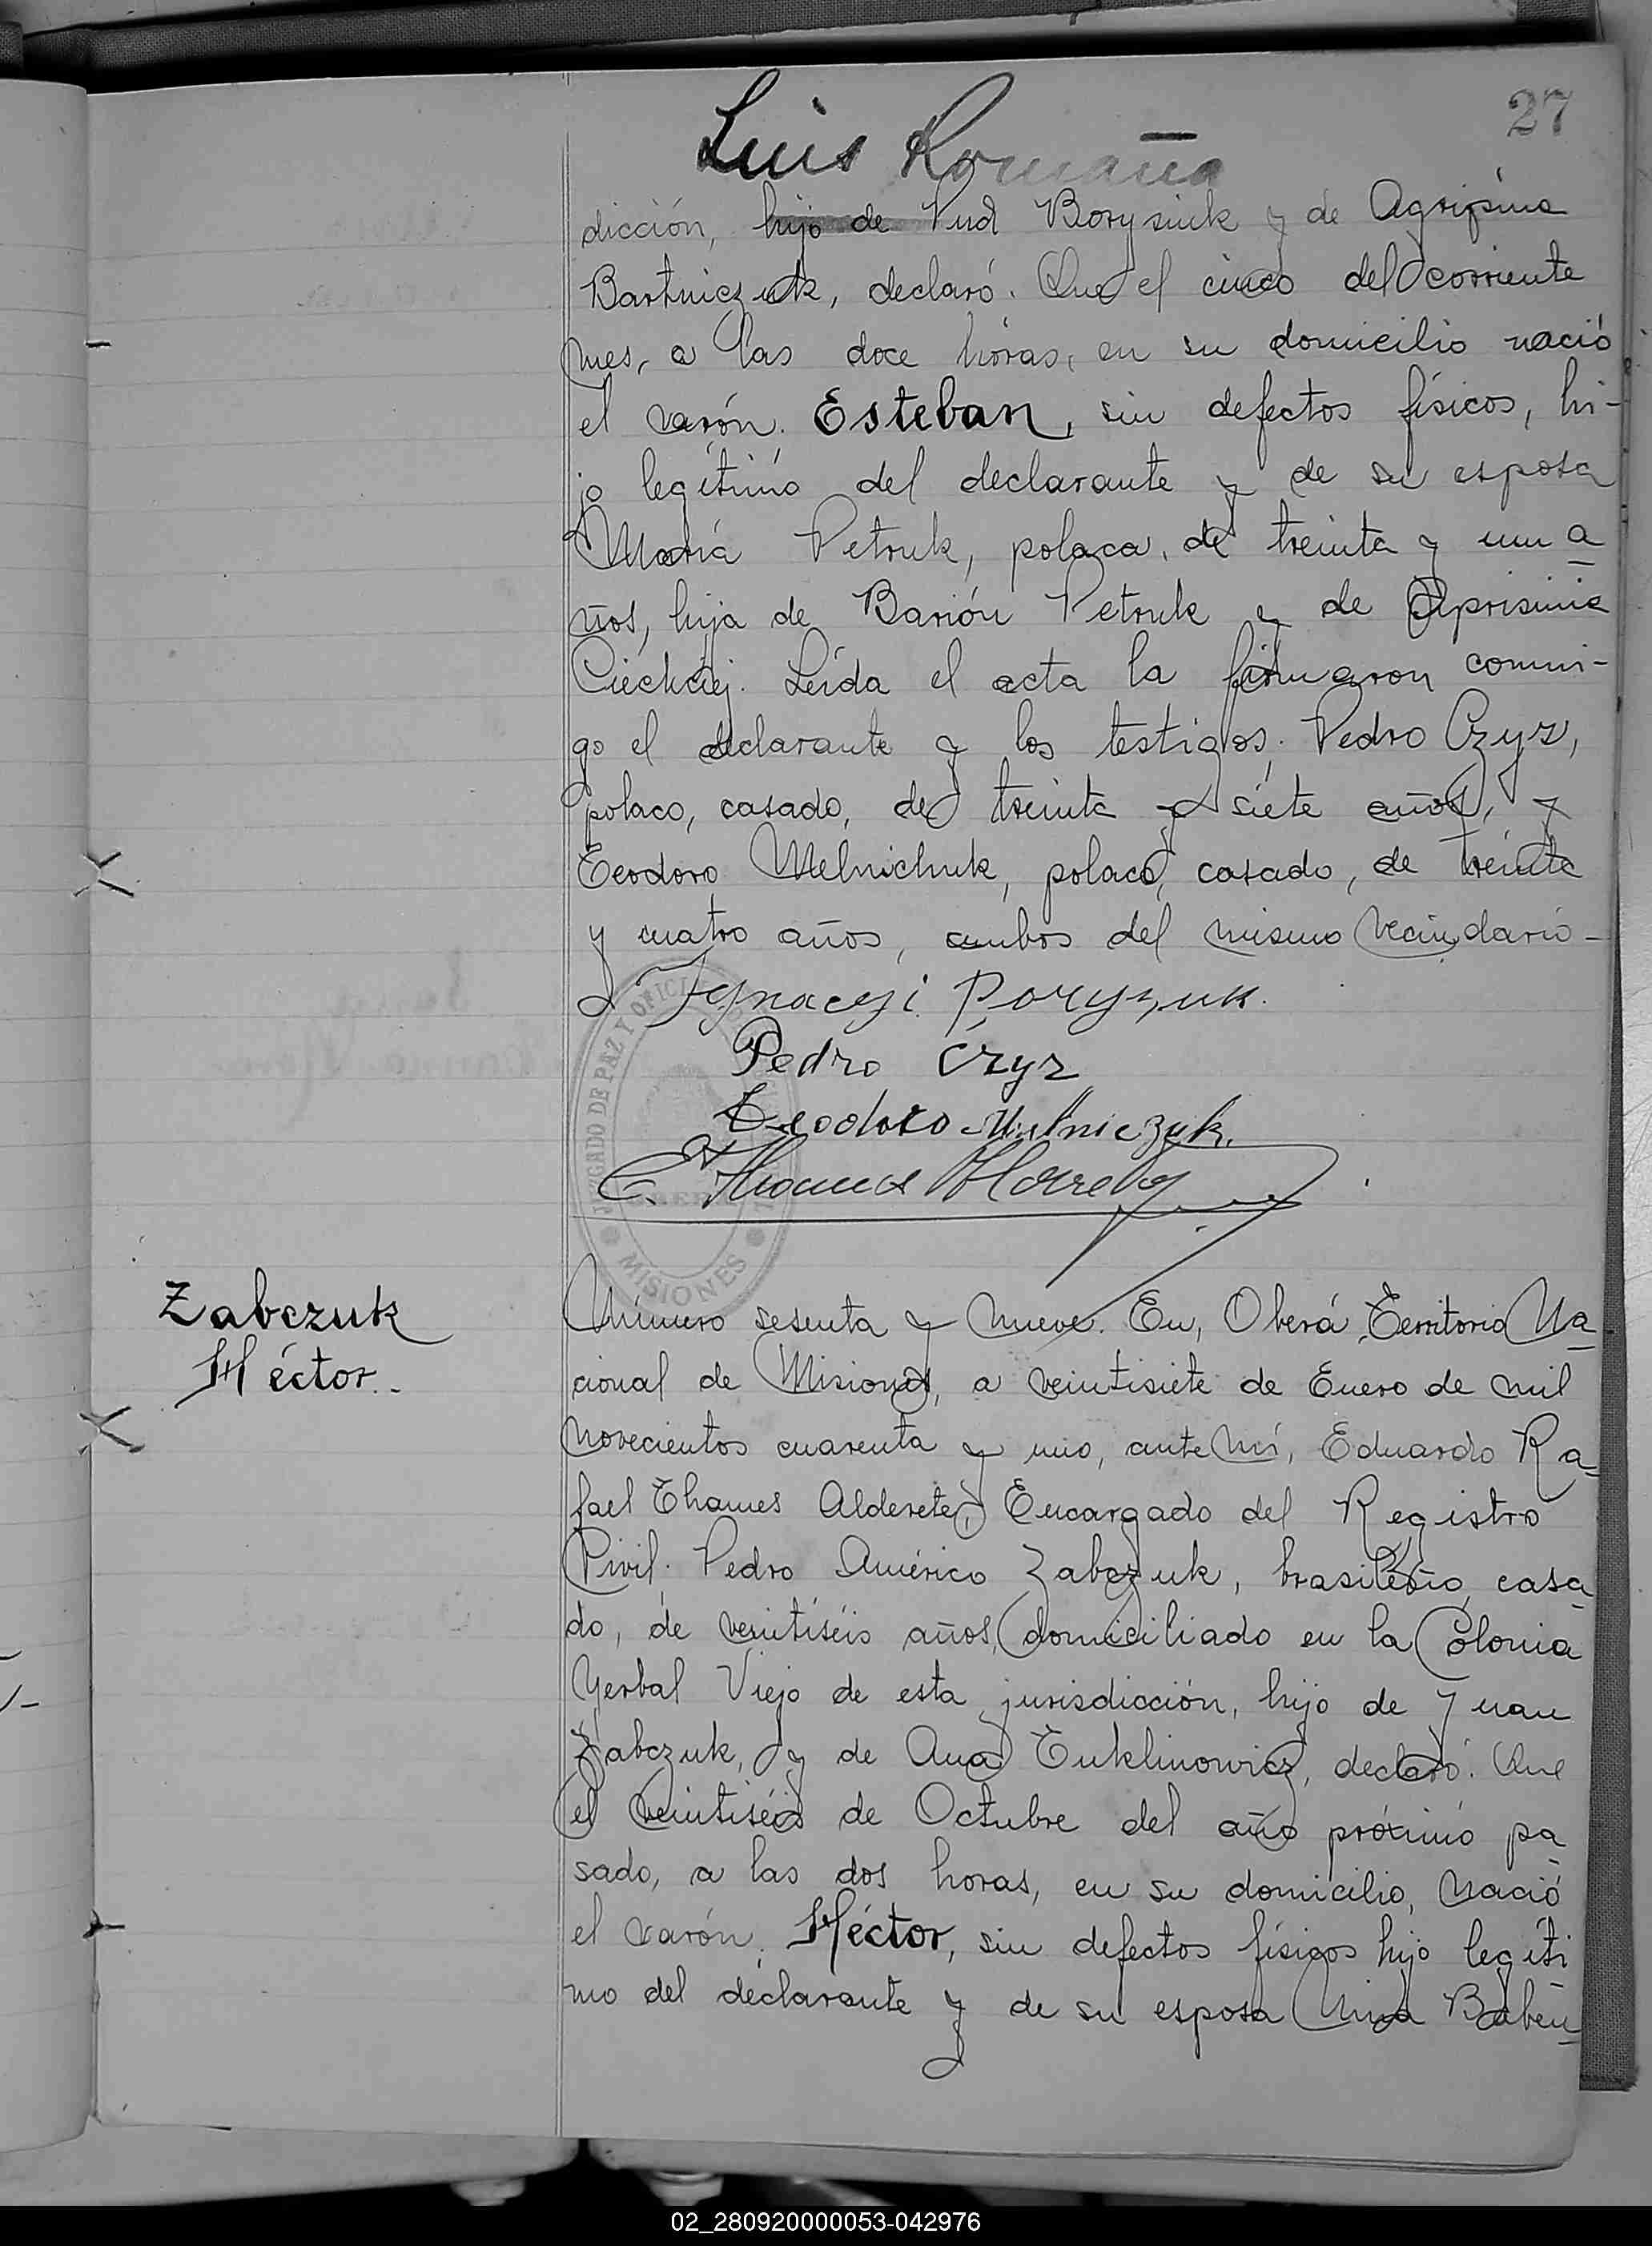 27
Luis Romaña
dicción, hijo de Pud Borysiuk y de Agripina
Bartniczuk, declaró: Que el cinco del corriente
mes, a las doce horas, en su domicilio nació
el varón. Esteban, sin defectos físicos, hi-
jo legítimo del declarante y de su esposa
María Petruk, polaca, de treinta y un a
ños, hija de Barión Petruk y de
Leída el acta la firmaron conmi-
go el declarante y los testigos: Pedro Czyz,
polaco, casado, de treinta y siete años, y
Teodoro Melnichuk, polaco, casado, de treinta
y cuatro años, ambos del mismo vecindario-
Ignacyi Poryszuk.
Pedro Czyz
Teodoro Melniczuk.
JUZGADO DE PAZ Y OFICI
OBERÁ
MISIONES
Zabczuk
Héctor.
Número sesenta y nueve. En, Oberá, Territorio Na
cional de Misiones, a veintisiete de Enero de mil
novecientos cuarenta y uno, ante mí, Eduardo Ra-
fael Thames Alderete, Encargado del Registro
Civil: Pedro Américo Zabczuk, brasileño, casa
do, de veintiséis años, domiciliado en la Colonia
Yerbal Viejo de esta jurisdicción, hijo de Juan
Zabczuk, y de Ana Tuklinowicz, declaró: Que
el veintiséis de Octubre del año próximo pa
sado, a las dos horas, en su domicilio, nació
el varón. Héctor, sin defectos físicos hijo legíti
mo del declarante y de su esposa Nina Baben
02_280920000053-042976